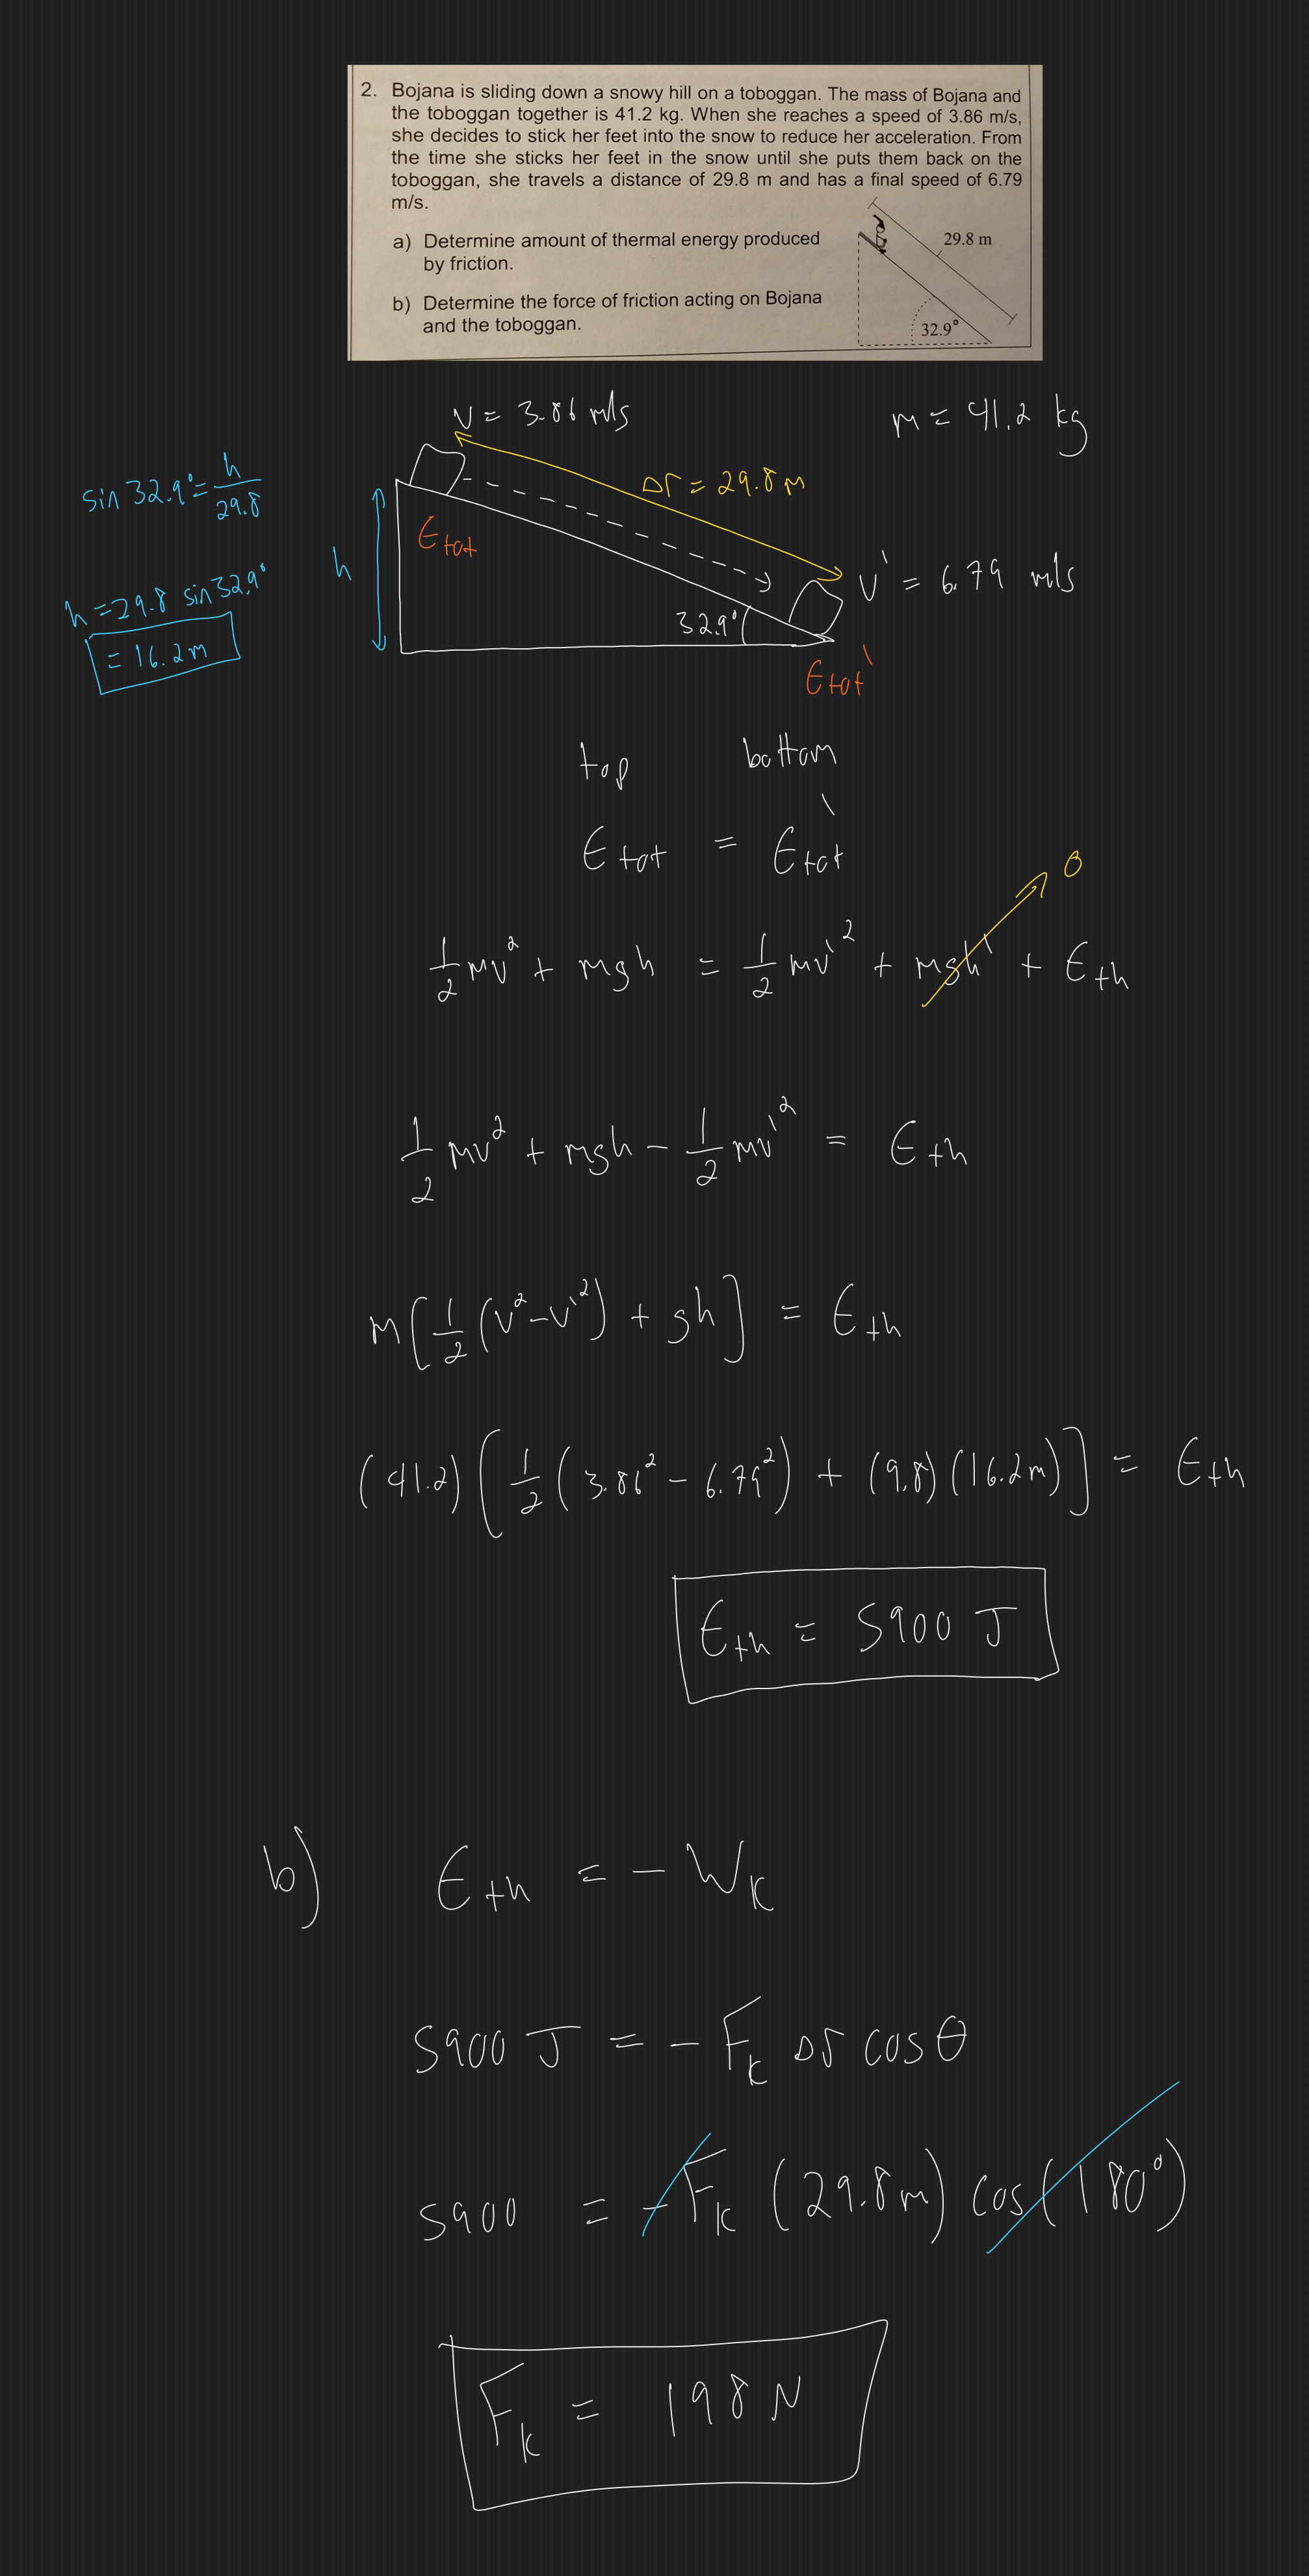 2. Bojana is sliding down a snowy hill on a toboggan. The mass of Bojana and
the toboggan together is 41.2 kg. When she reaches a speed of 3.86 m/s,
she decides to stick her feet into the snow to reduce her acceleration. From
the time she sticks her feet in the snow until she puts them back on the
toboggan, she travels a distance of 29.8 m and has a final speed of 6.79
m/s.
a) Determine amount of thermal energy produced
by friction.
b) Determine the force of friction acting on Bojana
and the toboggan.
29.8 m
32.9°
v = 3.86 m/s
m = 41.2 kg
sin 32.9° = h/29.8
h = 29.8 sin 32.9°
= 16.2 m
h
Etot
Δr = 29.8 m
v' = 6.79 m/s
32.9°
Etot'
top bottom
Etot = Etot'
1/2 mv² + mgh = 1/2 mv'² + mgh' + Eth
0
1/2 mv² + mgh - 1/2 mv'² = Eth
m[1/2 (v² - v'²) + gh] = Eth
(41.2) [1/2 (3.86² - 6.79²) + (9.8)(16.2m)] = Eth
Eth = 5900 J
b) Eth = - Wk
5900 J = - Fk Δr cos θ
5900 = - Fk (29.8m) cos(180°)
Fk = 198 N